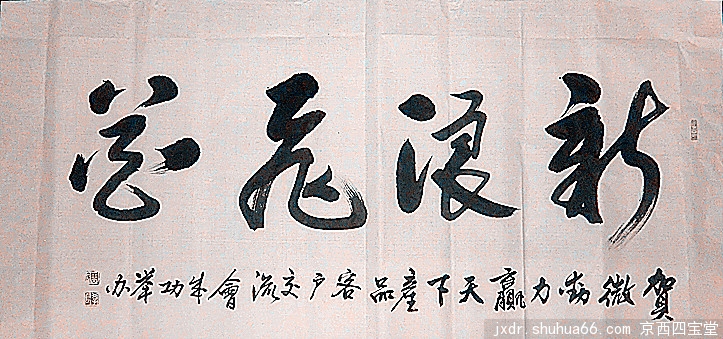 新浪飞花
賀微動力贏天下產品客户交流會成功举办
jxdr.shuhua66.com 京西四宝堂